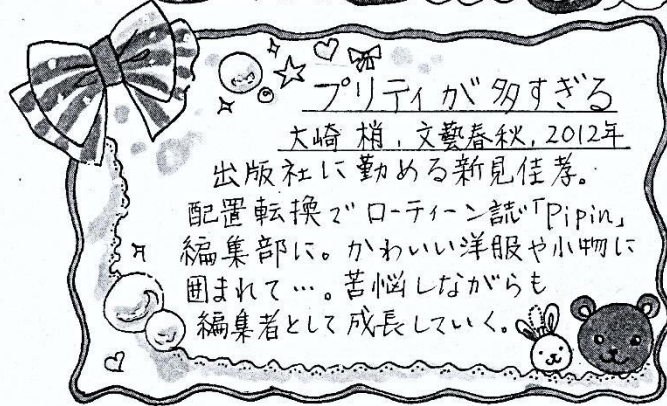 プリティが多すぎる
大崎 梢, 文藝春秋, 2012年
出版社に勤める新見佳孝。
配置転換でローティーン誌「Pipin」
編集部に。かわいい洋服や小物に
囲まれて…。苦悩しながらも
編集者として成長していく。